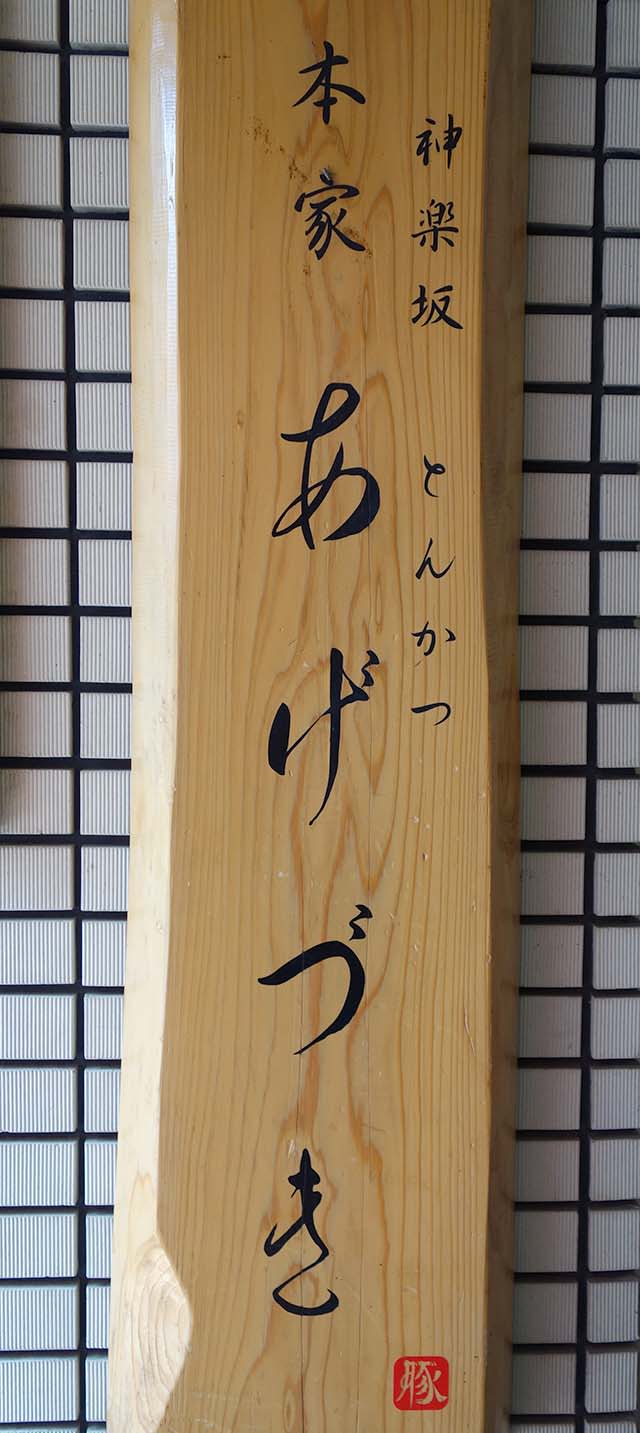 神楽坂 とんかつ
本家 あげづき
豚